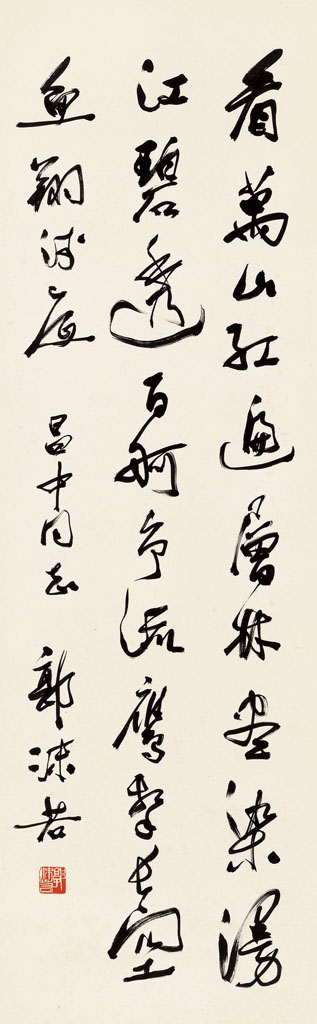 看萬山紅遍層林盡染漫
江碧透百舸爭流鷹擊長空
魚翔淺底 吕中同志 郭沫若